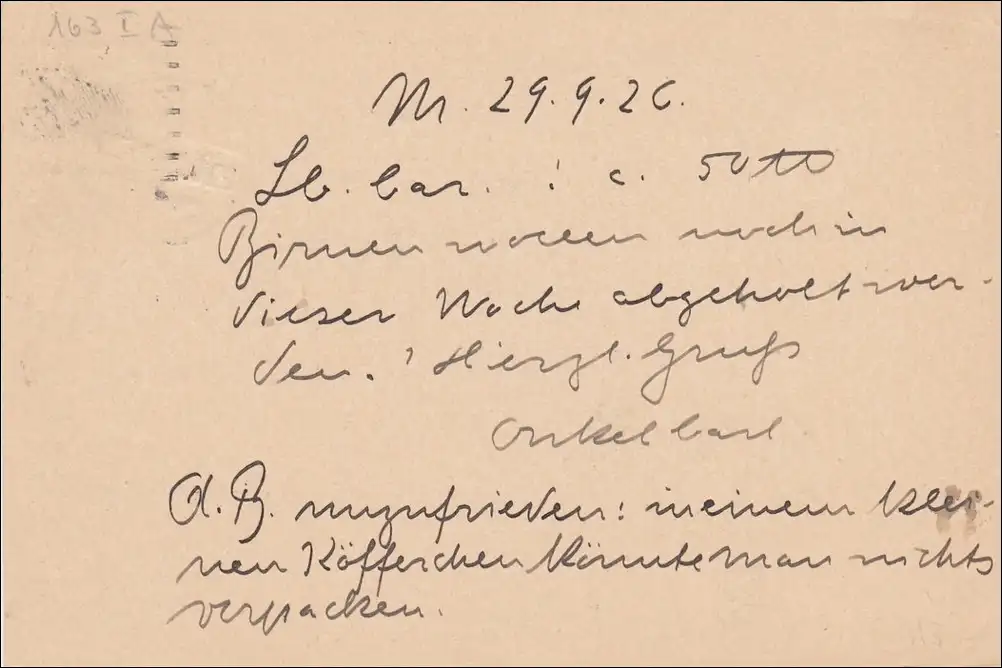 163 I A
M. 29.9.26.
Lb. Carl. ! c. 50 ℔
Birnen wollen noch in
dieser Woche abgeholt wer-
den. ! Herzl. Gruß
Onkel Carl
O.B. unzufrieden: in einem klei-
nen Köfferchen könnte man nichts
verpacken.